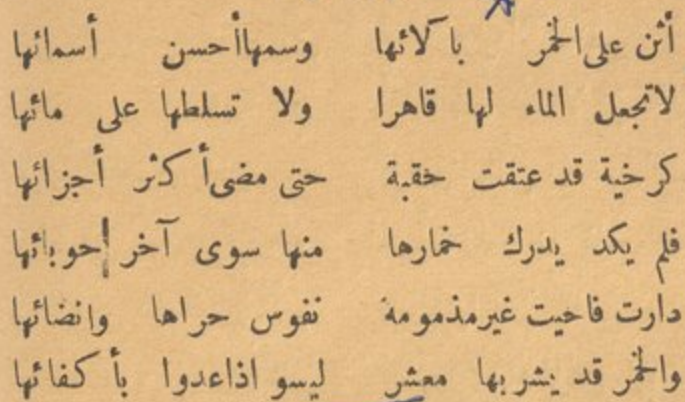 أثن على الخمر بآلائها وسمها أحسن أسمائها
لا تجعل الماء لها قاهرا ولا تسلطها على مائها
كرخية قد عتقت حقبة حتى مضى أكثر أجزائها
فلم يكد يدرك خمارها منها سوى آخر حوبائها
دارت فاحيت غير مذمومة نفوس حراها وانضائها
والخمر قد يشربها معشر ليسو اذا عدوا بأكفائها